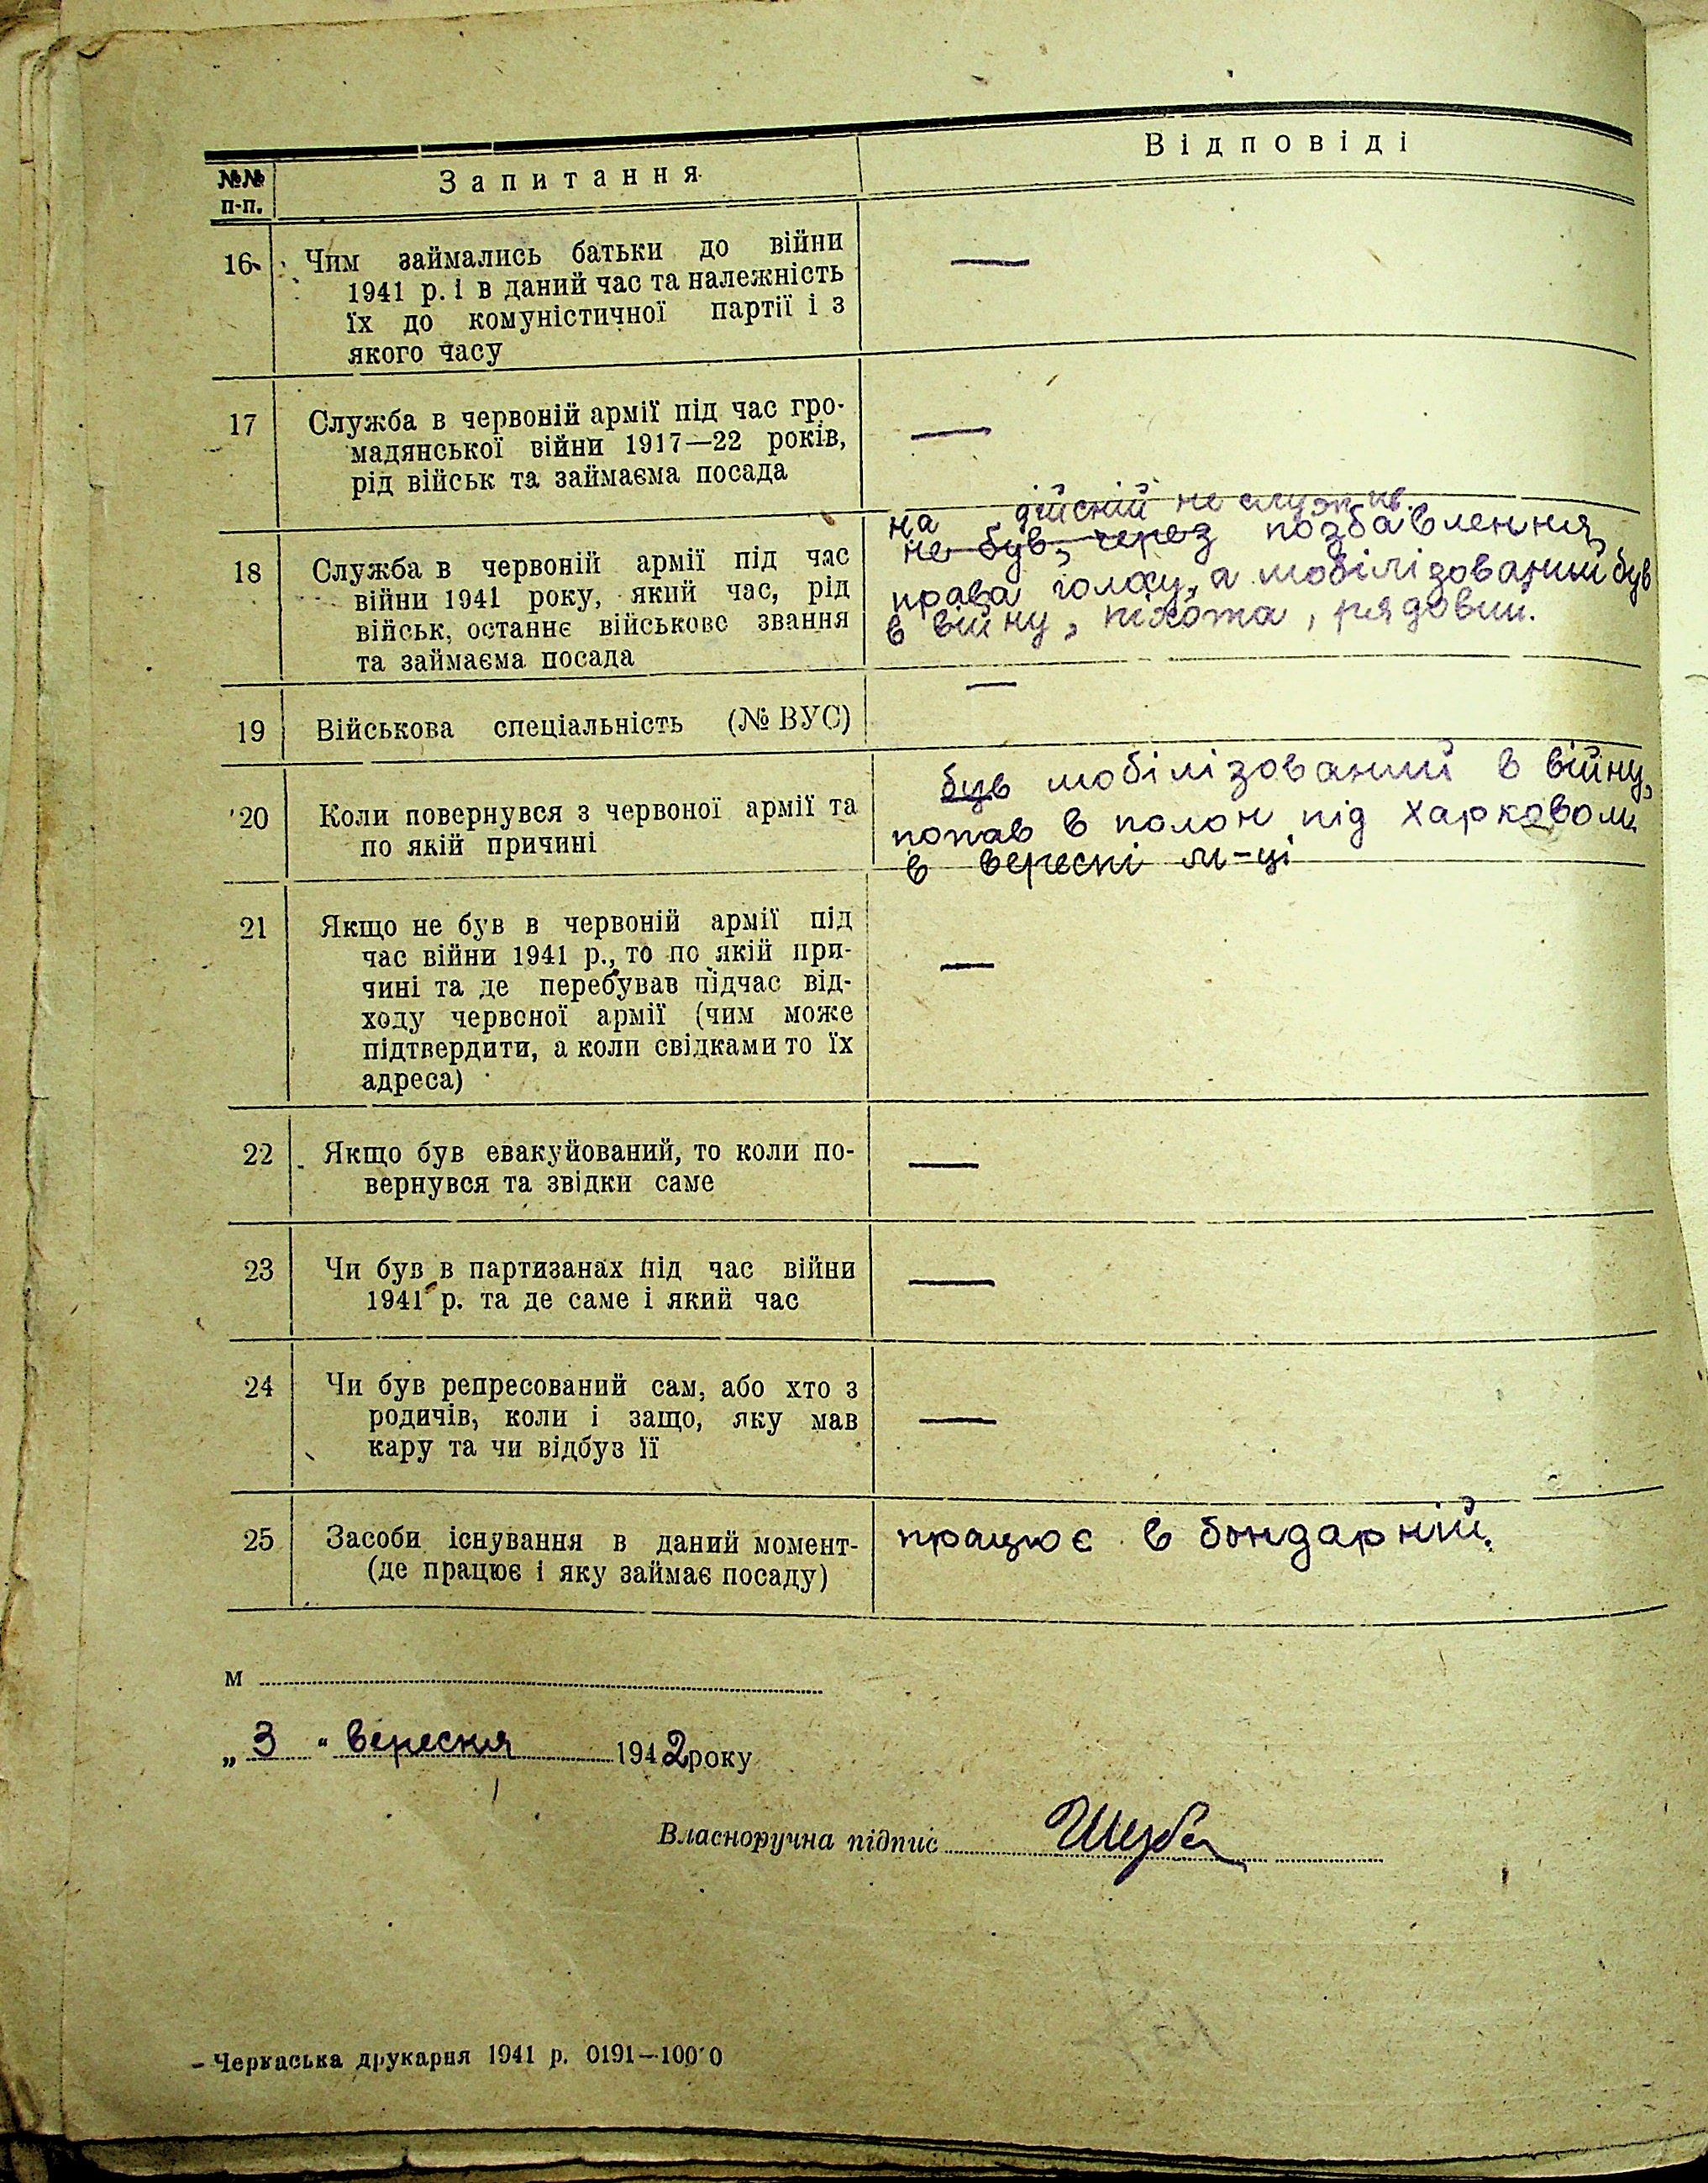 №№ п-п.
Запитання
Відповіді
16. Чим займались батьки до війни
1941 р. і в даний час та належність
їх до комуністичної партії і з
якого часу
—
17 Служба в червоній армії під час гро-
мадянської війни 1917—22 років,
рід військ та займаєма посада
—
18 Служба в червоній армії під час
війни 1941 року, який час, рід
військ, останнє військове звання
та займаєма посада
на дійсній не служив
не був, через позбавлення
права голосу, а мобілізований був
в війну, піхота, рядовий.
19 Військова спеціальність (№ ВУС)
—
20 Коли повернувся з червоної армії та
по якій причині
був мобілізований в війну,
попав в полон під Харковом
в вересні м-ці
21 Якщо не був в червоній армії під
час війни 1941 р., то по якій при-
чині та де перебував підчас від-
ходу червоної армії (чим може
підтвердити, а коли свідками то їх
адреса)
—
22 Якщо був евакуйований, то коли по-
вернувся та звідки саме
—
23 Чи був в партизанах під час війни
1941 р. та де саме і який час
—
24 Чи був репресований сам, або хто з
родичів, коли і защо, яку мав
кару та чи відбув її
—
25 Засоби існування в даний момент-
(де працює і яку займає посаду)
працює в бондарній.
м
„3“ вересня 1942 року
Власноручна підпис
Черкаська друкарня 1941 р. 0191—1000